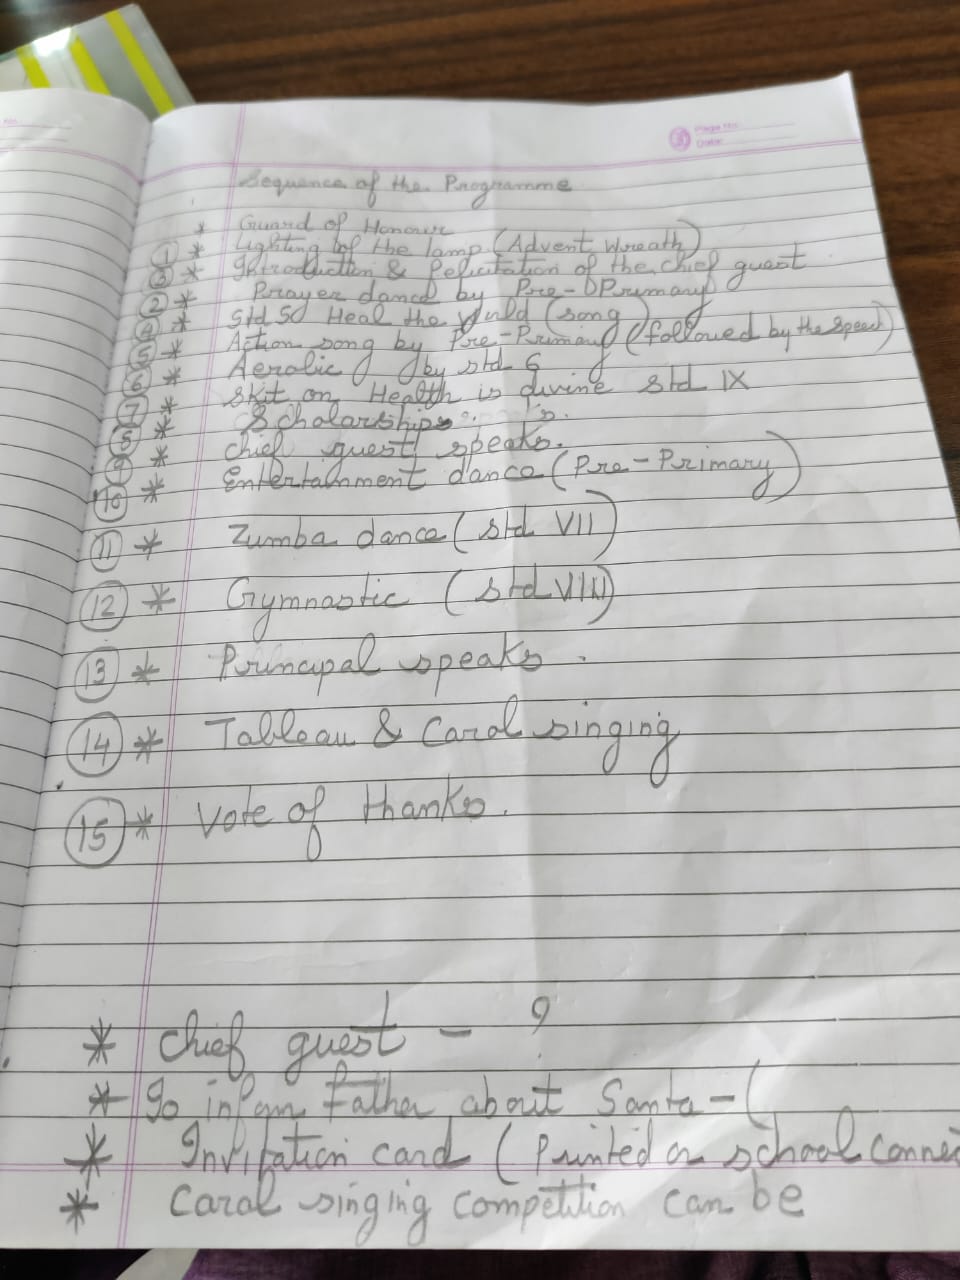 Page No.
Date:
Sequence of the Programme
* Guard of Honour
① * Lighting of the lamp (Advent Wreath)
③ * Introduction & Felicitation of the chief guest
② * Prayer dance by Pre-Primary
④ * Std 5 Heal the World (song)
⑤ * Action song by Pre-Primary (followed by the speech)
⑥ * Aerobic by std 6
⑦ * Skit on Health is divine std IX
⑧ * Scholarships
⑨ * Chief guest speaks.
⑩ * Entertainment dance (Pre-Primary)
⑪ * Zumba dance (std VII)
⑫ * Gymnastic (std VIII)
⑬ * Principal speaks.
⑭ * Tableau & Carol singing
⑮ * Vote of thanks.
* Chief guest - ?
* To inform Father about Santa - (
* Invitation card (Printed or school
* Carol singing competition can be